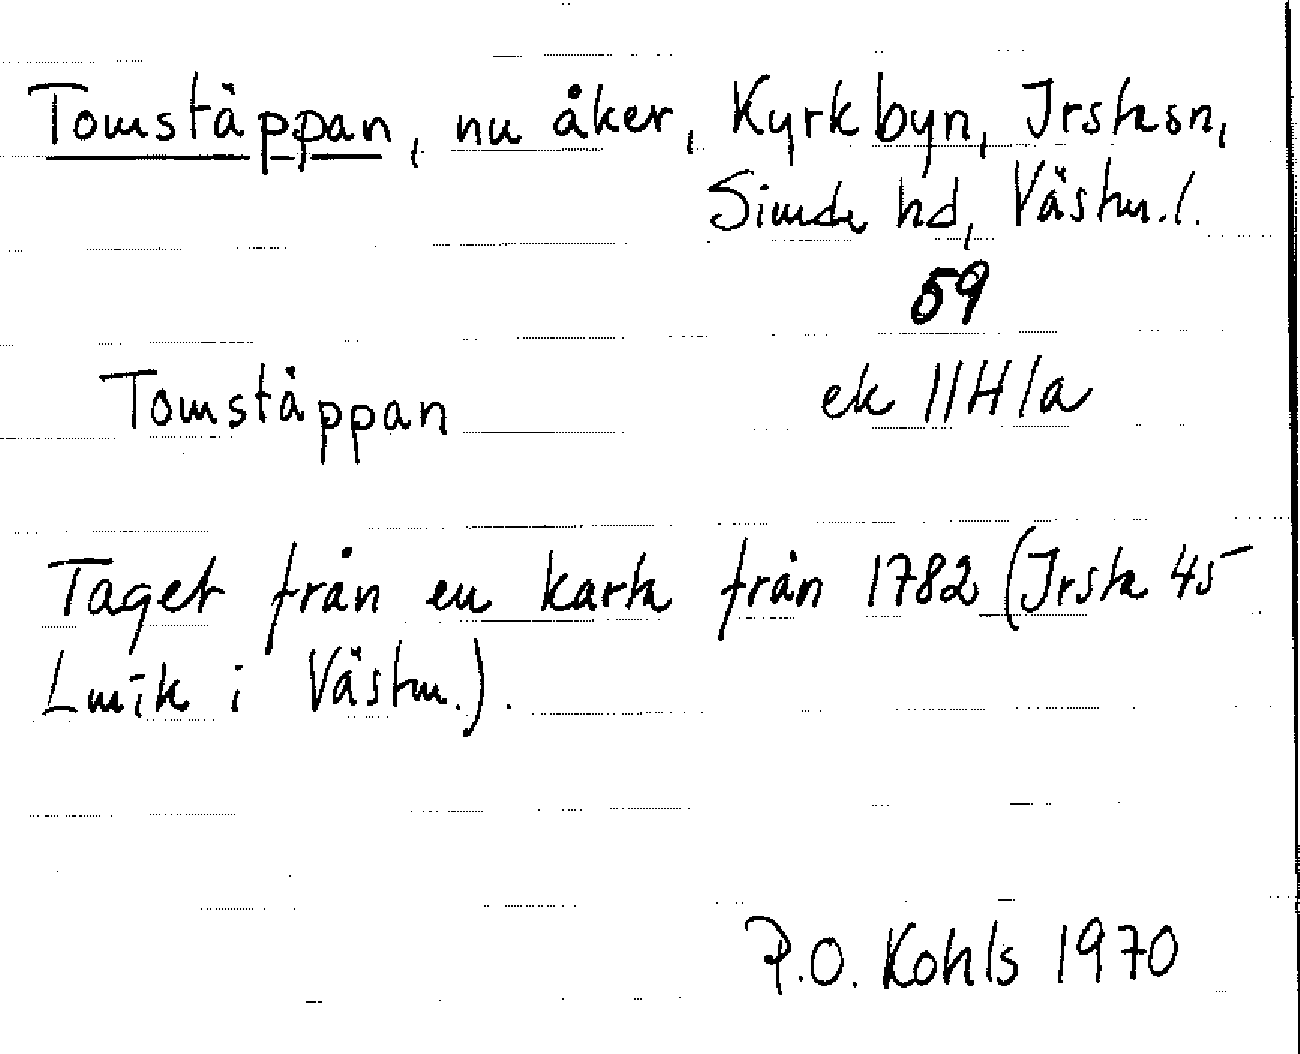 Tomstäppan, nu åker, Kyrkbyn, Irsta sn,
Simde hd, Västm. l.
59
Tomståppan ek 11H1a
Taget från en karta från 1782 (Irsta 45
Lmtk i Västm.).
P.O. Kohls 1970